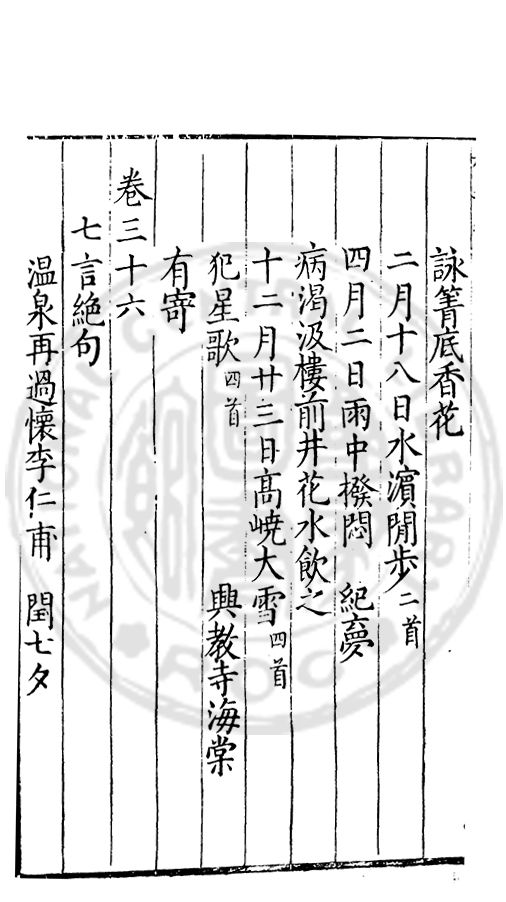 詠箐底香花
二月十八日水濱閒步二首
四月二日雨中撥悶　紀夢
病渴汲樓前井花水飲之
十二月廿三日高嶢大雪四首
犯星歌四首　興教寺海棠
有寄
卷三十六
七言絕句
溫泉再過懷李仁甫　閏七夕